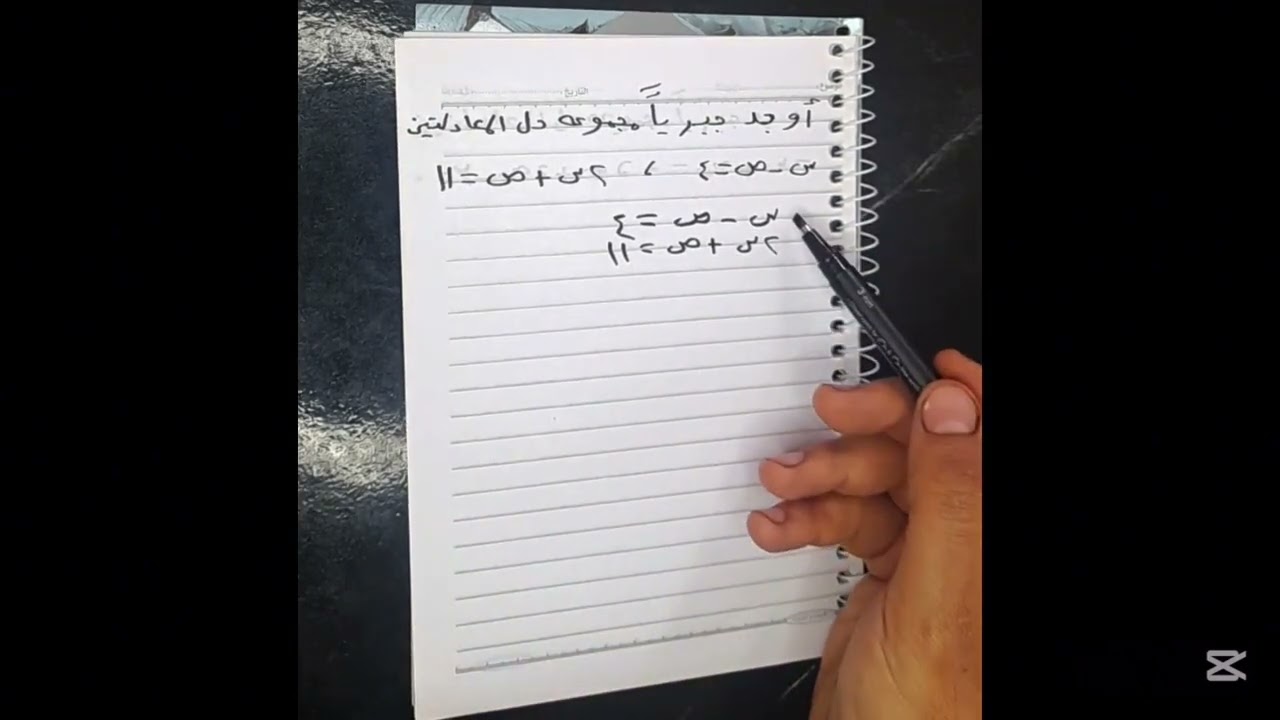 التاريخ
أوجد جبرياً مجموعة حل المعادلتين
س - ص = ٤ ، ٢س + ص = ١١
س - ص = ٤
٢س + ص = ١١